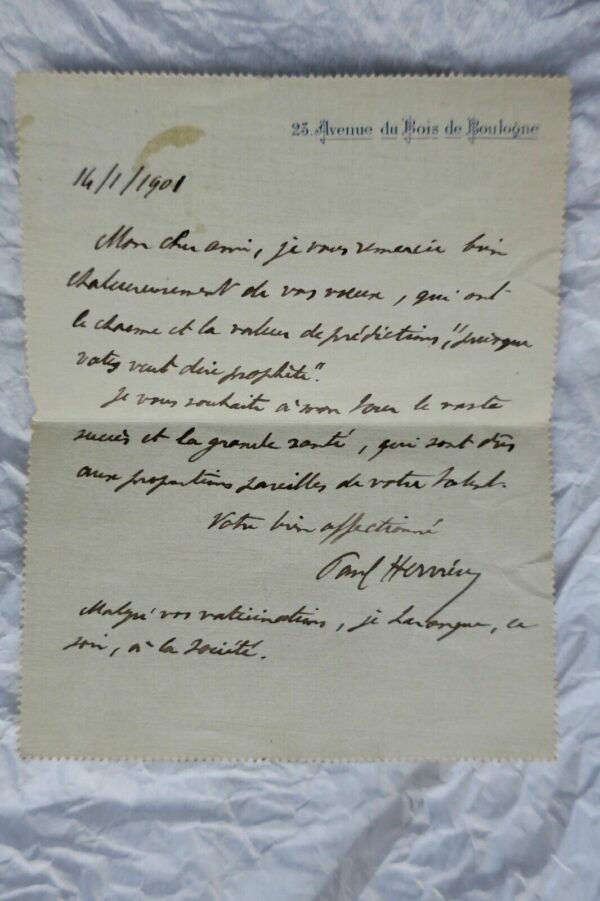 23. Avenue du Bois de Boulogne
14/1/1901
Mon cher ami, je vous remercie bien
chaleureusement de vos vœux, qui ont
le charme et la valeur de prédictions, "puisque
vates veut dire prophète".
Je vous souhaite à mon tour le vaste
succès et la grande santé, qui sont dûs
aux proportions pareilles de votre talent.
Votre bien affectionné
Paul Hervieu
Malgré vos vaticinations, je harangue, ce
soir, à la Société.